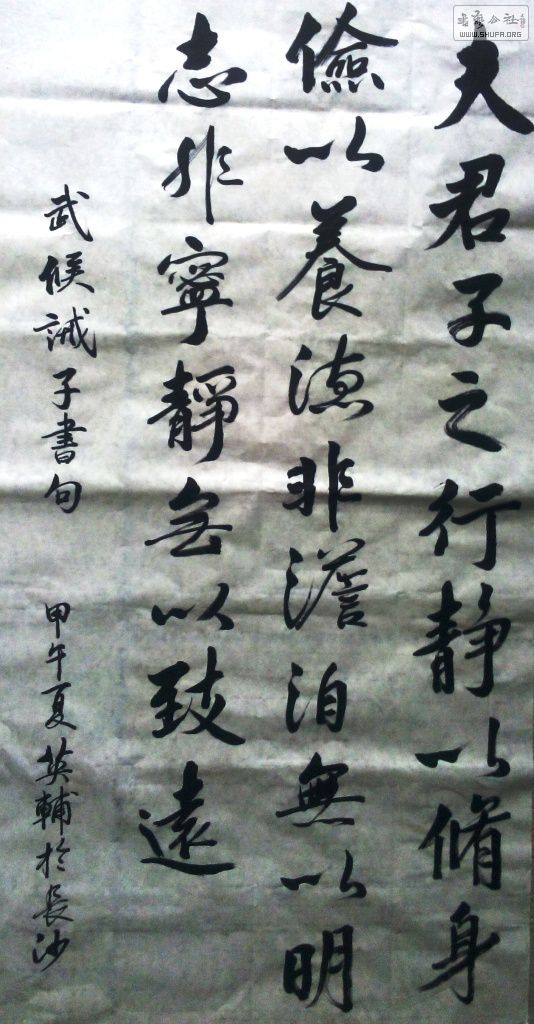 夫君子之行静以脩身
儉以養德非澹泊無以明
志非寧靜無以致遠
武侯誡子書句
甲午夏英輔於長沙
書法公社
WWW.SHUFA.ORG